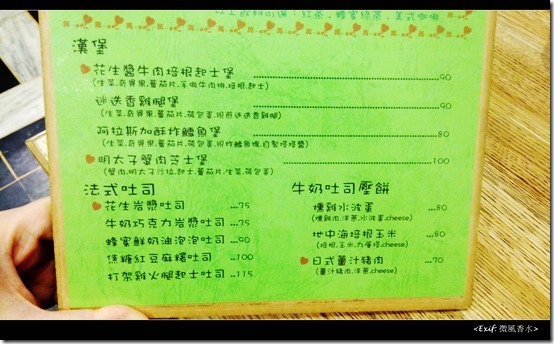 漢堡
花生醬牛肉培根起士堡 ........90
(生菜.奇異果.蕃茄片.手做牛肉排.培根.起士)
迷迭香雞腿堡 ........90
(生菜.奇異果.蕃茄片.荷包蛋.現煎迷迭香雞腿)
阿拉斯加酥炸鱈魚堡 ........80
(生菜.奇異果.蕃茄片.荷包蛋.現炸鱈魚塊.自製塔塔醬)
明太子蟹肉芝士堡 ........100
(蟹肉.明太子沙拉.起士.蕃茄片.生菜.荷包蛋)
法式吐司
花生岩漿吐司 ...75
牛奶巧克力岩漿吐司 ...75
蜂蜜鮮奶油泡泡吐司 ...90
焦糖紅豆麻糬吐司 ...100
打架雞火腿起士吐司 ...115
牛奶吐司壓餅
燻雞水波蛋 ...80
(燻雞肉.洋蔥.水波蛋.cheese)
地中海培根玉米 ...80
(培根.玉米.九層塔.cheese)
日式薑汁豬肉 ...70
(薑汁豬肉.洋蔥.cheese)
<Exif: 微風香水>